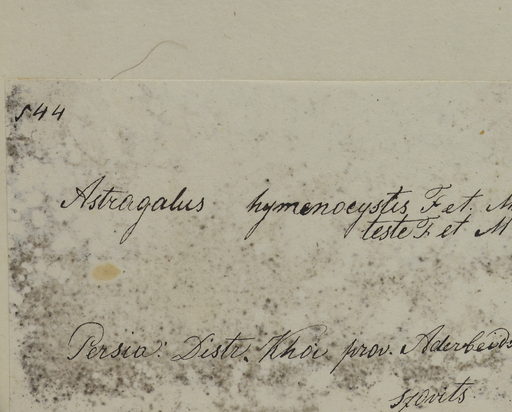 544
Astragalus hymenocystis F. et. M
teste F. et M
Persia: Distr. Khoi prov. Aderbeids
Szovits.